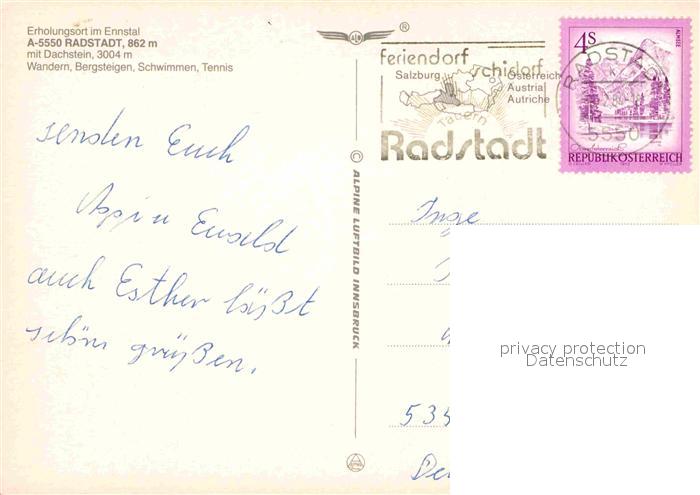 Erholungsort im Ennstal
A-5550 RADSTADT, 862 m
mit Dachstein, 3004 m
Wandern, Bergsteigen, Schwimmen, Tennis
senden Euch
Ewald
auch Esther läßt
schön grüßen.
© ALPINE LUFTBILD INNSBRUCK
®
feriendorf
schidorf
Salzburg
Österreich
Austria
Autriche
Tauern
Radstadt
RADSTADT
5550
4 S
ALMSEE
REPUBLIK ÖSTERREICH
Inge
535
privacy protection
Datenschutz